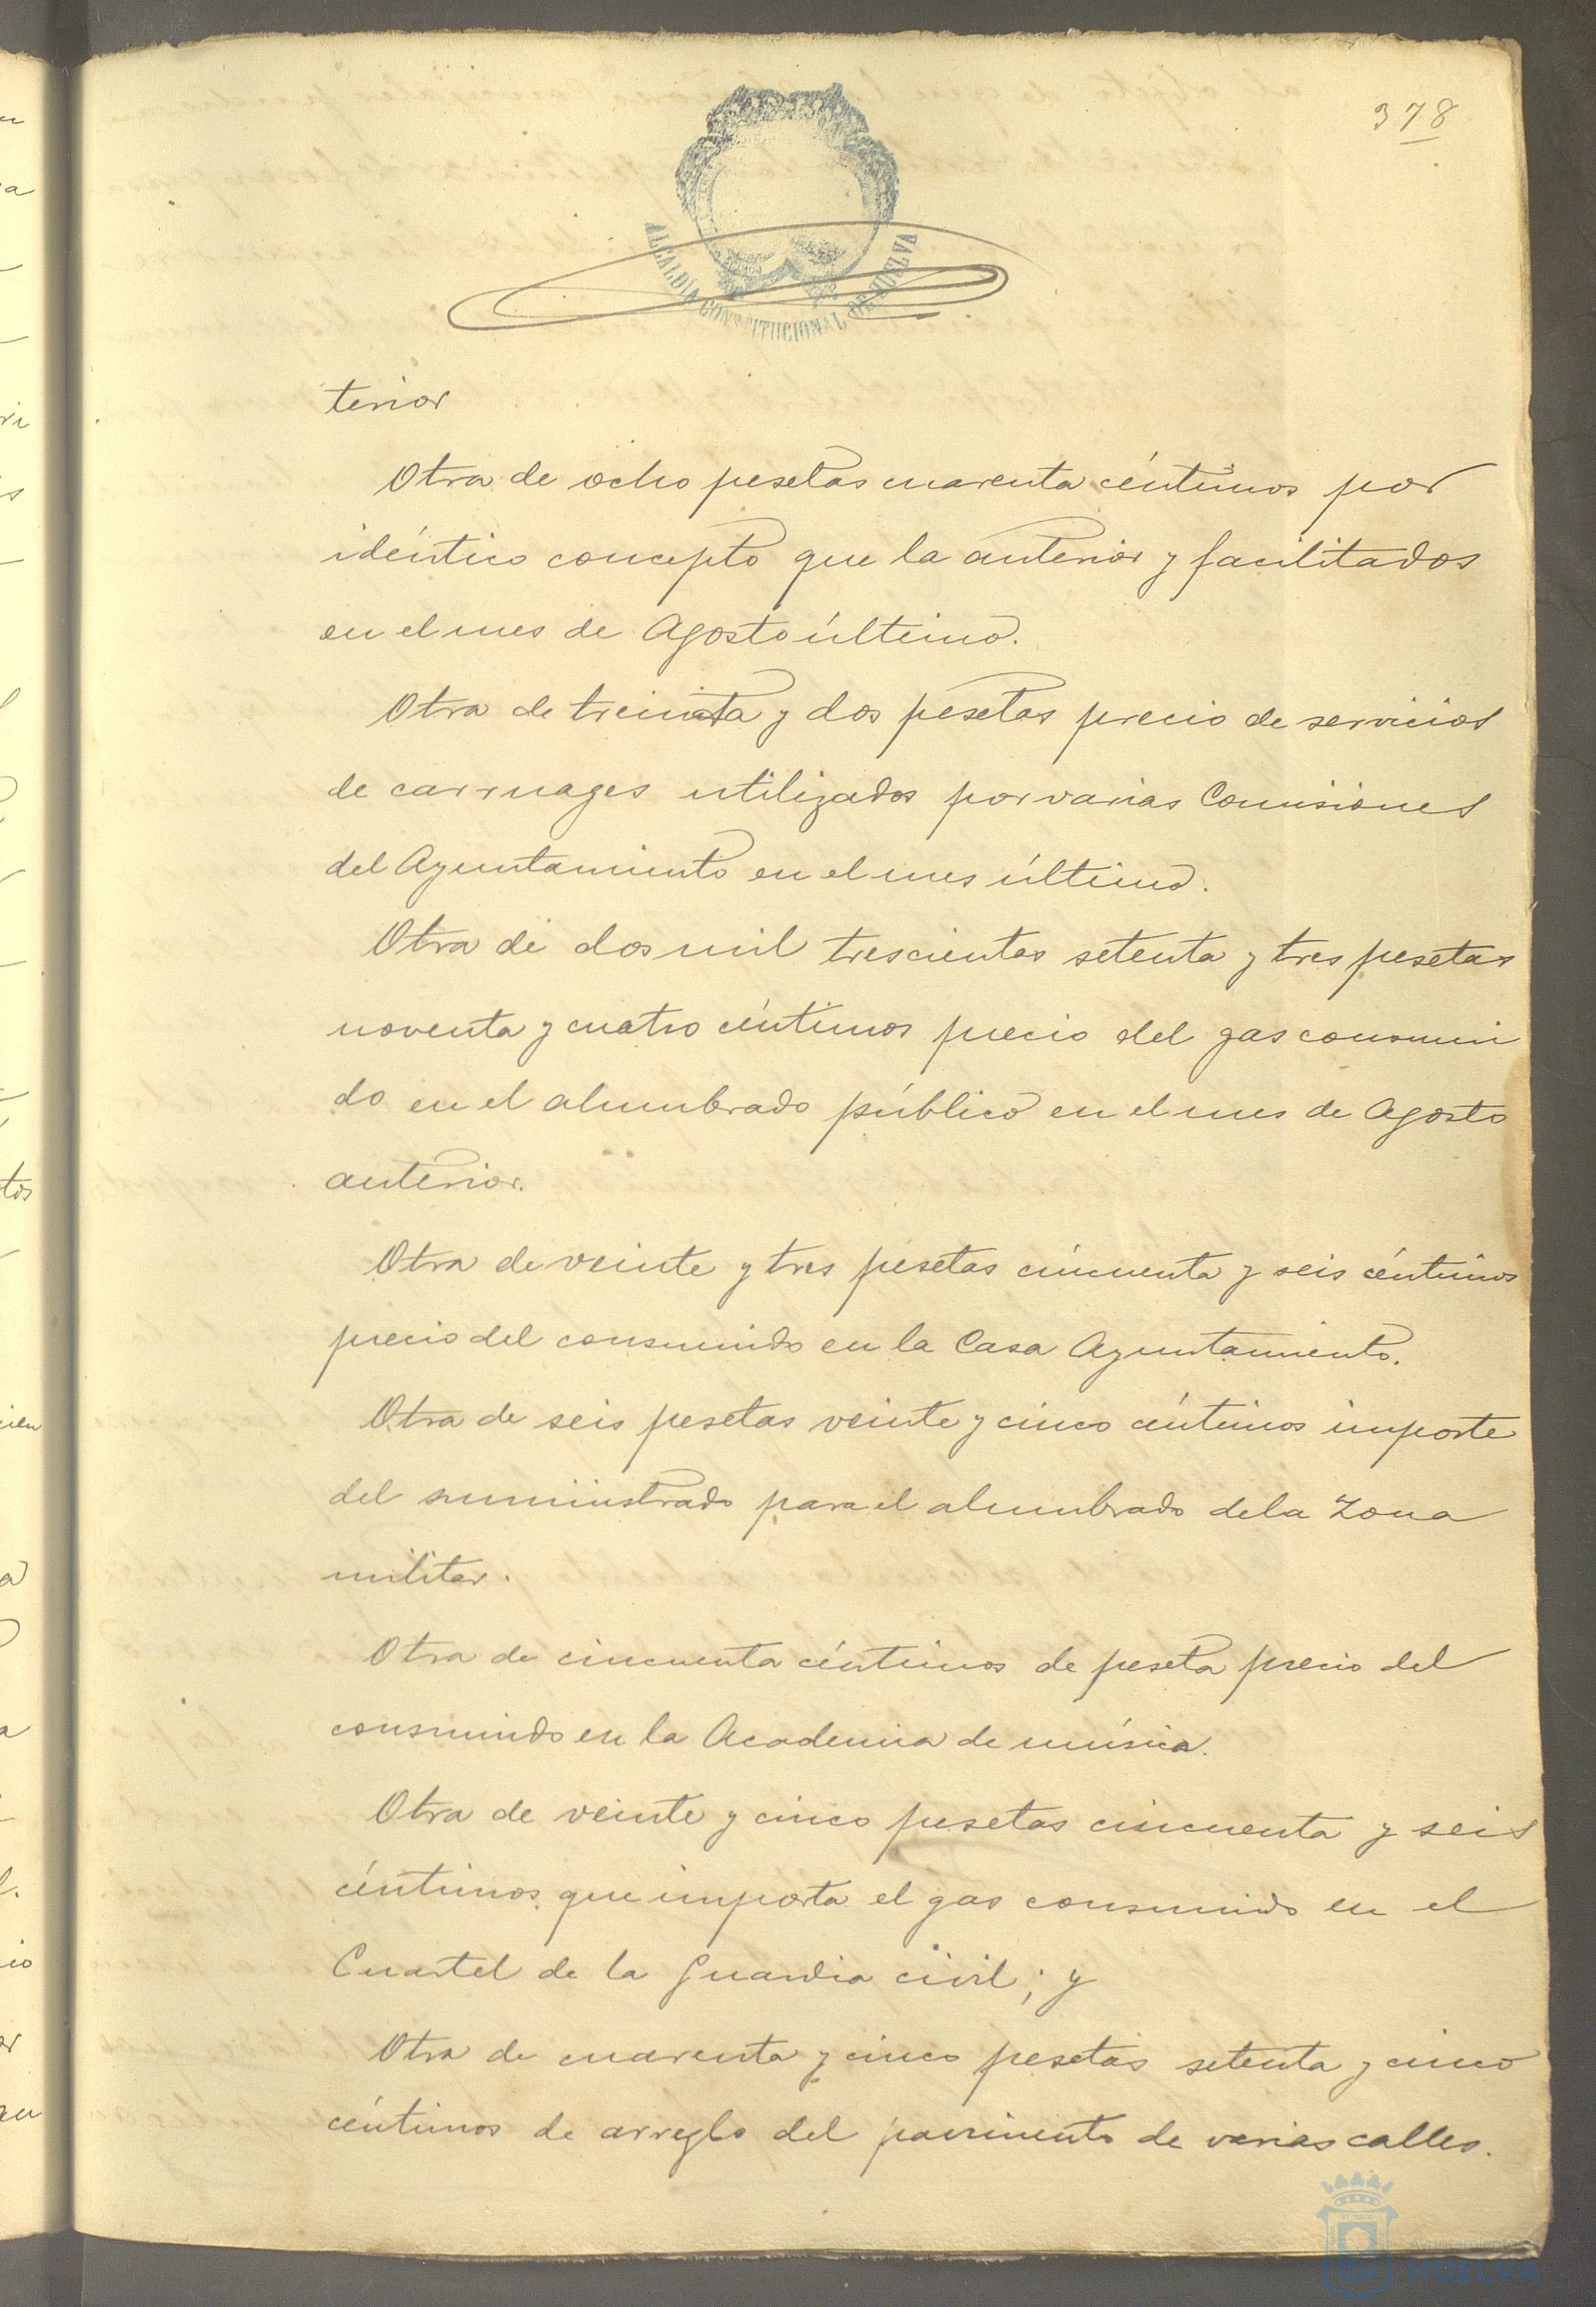 378
ALCALDÍA CONSTITUCIONAL DE HUELVA
terior
Otra de ocho pesetas cuarenta céntimos por
idéntico concepto que la anterior y facilitados
en el mes de Agosto último.
Otra de treinta y dos pesetas precio de servicios
de carruages utilizados por varias Comisiones
del Ayuntamiento en el mes último.
Otra de dos mil trescientas setenta y tres pesetas
noventa y cuatro céntimos precio del gas consumi
do en el alumbrado público en el mes de Agosto
anterior.
Otra de veinte y tres pesetas cincuenta y seis céntimos
precio del consumido en la Casa Ayuntamiento.
Otra de seis pesetas veinte y cinco céntimos importe
del suministrado para el alumbrado de la Zona
militar.
Otra de cincuenta céntimos de peseta precio del
consumido en la Academia de música.
Otra de veinte y cinco pesetas cincuenta y seis
céntimos que importa el gas consumido en el
Cuartel de la Guardia civil; y
Otra de cuarenta y cinco pesetas setenta y cinco
céntimos de arreglo del pavimento de varias calles.
HUELVA